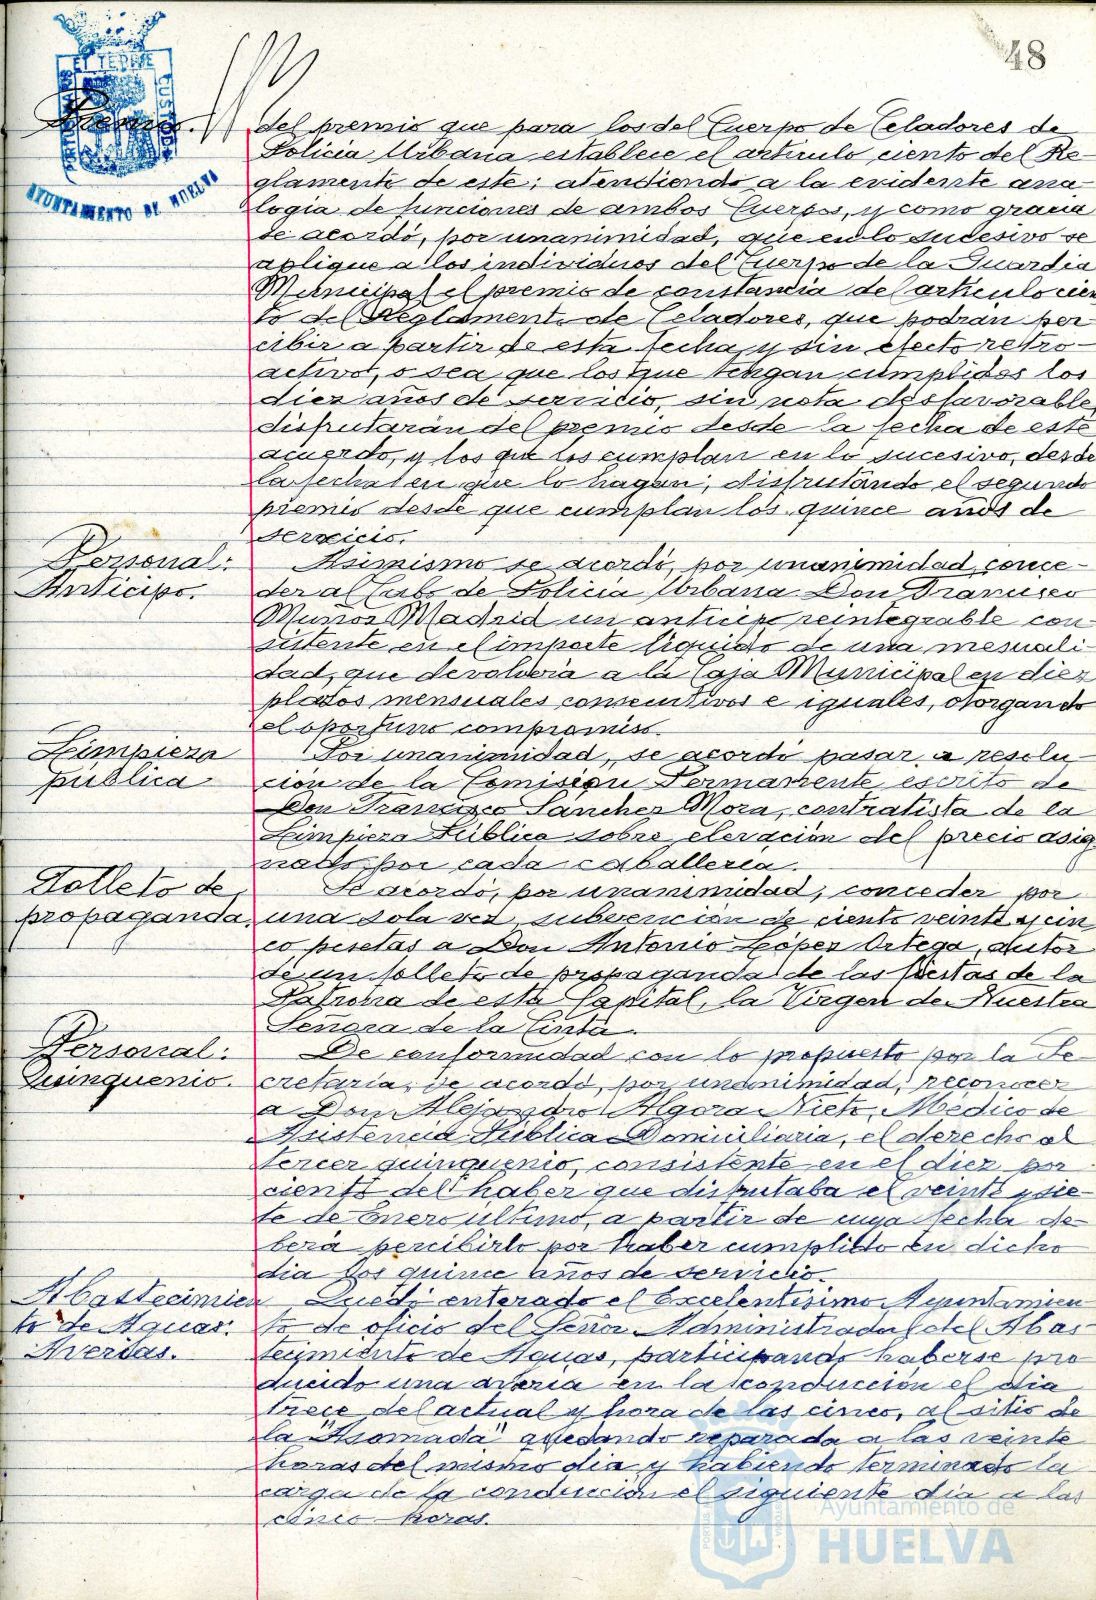 48
ET TERRE
CUSTODIA
AYUNTAMIENTO DE HUELVA
Premio.
del premio que para los del Cuerpo de Celadores de
Policía Urbana establece el artículo ciento del Re-
glamento de este; atendiendo a la evidente ana-
logía de funciones de ambos Cuerpos, y como gracia
se acordó, por unanimidad, que en lo sucesivo se
aplique a los individuos del Cuerpo de la Guardia
Municipal el premio de constancia del artículo cien
to del Reglamento de Celadores, que podrán per-
cibir a partir de esta fecha y sin efecto retro-
activo, o sea que los que tengan cumplidos los
diez años de servicio, sin nota desfavorable,
disfrutarán del premio desde la fecha de este
acuerdo, y los que los cumplan en lo sucesivo, desde
la fecha en que lo hagan; disfrutando el segundo
premio desde que cumplan los quince años de
servicio.
Personal:
Anticipo.
Asimismo se acordó, por unanimidad, conce-
der al Cabo de Policía Urbana Don Francisco
Muñoz Madrid un anticipo reintegrable con-
sistente en el importe líquido de una mesuali-
dad, que devolvería a la Caja Municipal en diez
plazos mensuales consecutivos e iguales, otorgando
el oportuno compromiso.
Limpieza
pública
Por unanimidad, se acordó pasar a resolu-
ción de la Comisión Permanente escrito de
Don Francisco Sánchez Mora, contratista de la
Limpieza Pública sobre elevación del precio asig
nado por cada caballería.
Folleto de
propaganda.
Se acordó, por unanimidad, conceder por
una sola vez, subvención de ciento veinte y cin
co pesetas a Don Antonio López Ortega, autor
de un folleto de propaganda de las fiestas de la
Patrona de esta Capital, la Virgen de Nuestra
Señora de la Cinta.
Personal:
Quinquenio.
De conformidad con lo propuesto por la Se-
cretaría, se acordó, por unanimidad, reconocer
a Don Alejandro Algora Nieto, Médico de
Asistencia Pública Domiciliaria, el derecho al
tercer quinquenio, consistente en el diez por
ciento del haber que disfrutaba el veinte y sie-
te de Enero último, a partir de cuya fecha de-
berá percibirlo por haber cumplido en dicho
dia los quince años de servicio.
Abastecimien
to de Aguas.
Averías.
Quedó enterado el Excelentísimo Ayuntamien
to de oficio del Señor Administrador del Abas-
tecimiento de Aguas, participando haberse pro
ducido una avería en la conducción el dia
trece del actual y hora de las cinco, al sitio de
la "Asomada" quedando reparada a las veinte
horas del mismo dia y habiendo terminado la
carga de la conducción el siguiente dia a las
cinco horas.
Ayuntamiento de
HUELVA